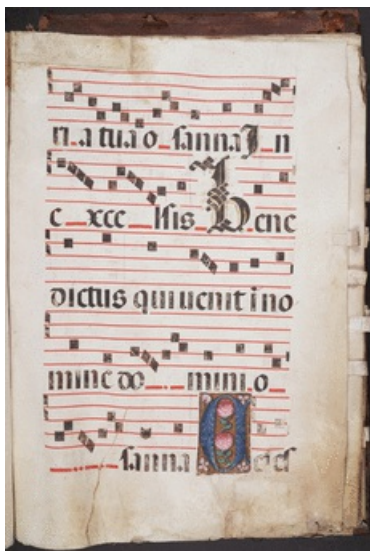 ri a tua o sanna I n
e xce lsis Bene
dictus qui uenit i no
mine do mini o
sanna